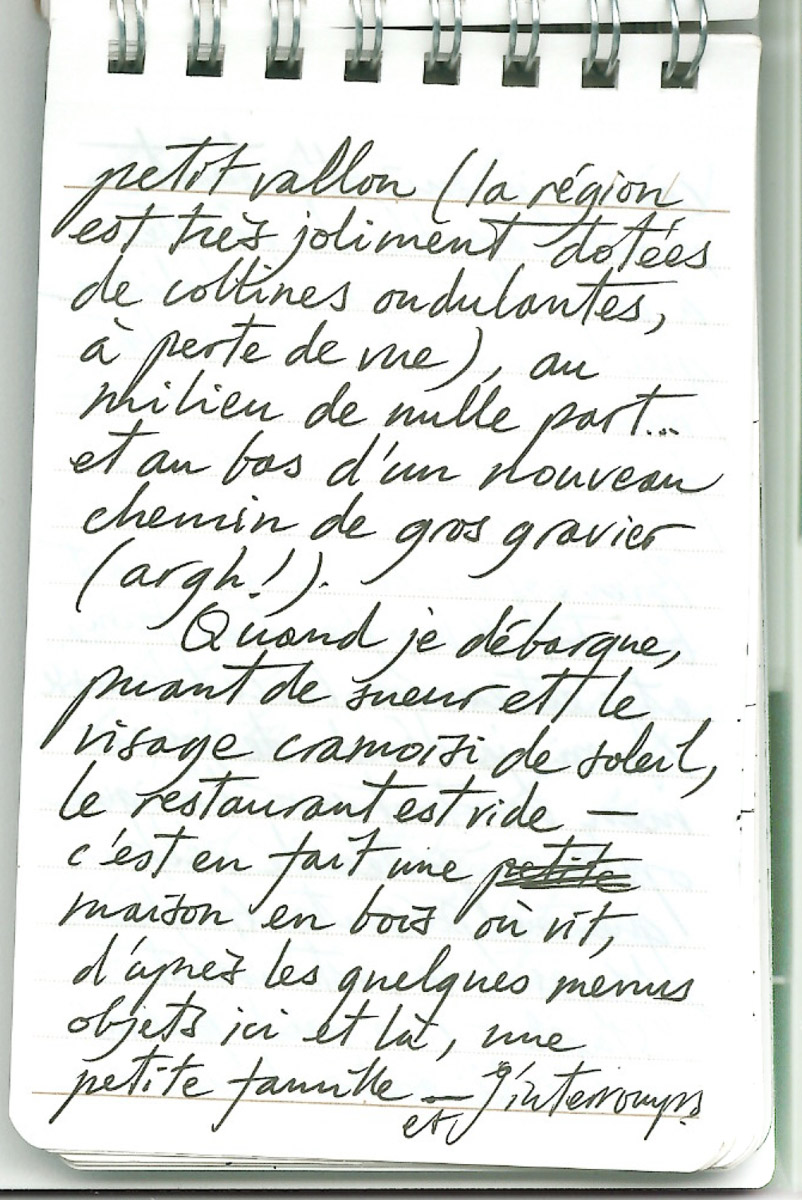 petit vallon (la région
est très joliment dotées
de collines ondulantes,
à perte de vue), au
milieu de nulle part...
et au bas d'un nouveau
chemin de gros gravier
(argh!).
Quand je débarque,
puant de sueur et le
visage cramoisi de soleil,
le restaurant est vide —
c'est en fait une petite
maison en bois où vit,
d'après les quelques menus
objets ici et là, une
petite famille — j'interromps
et,